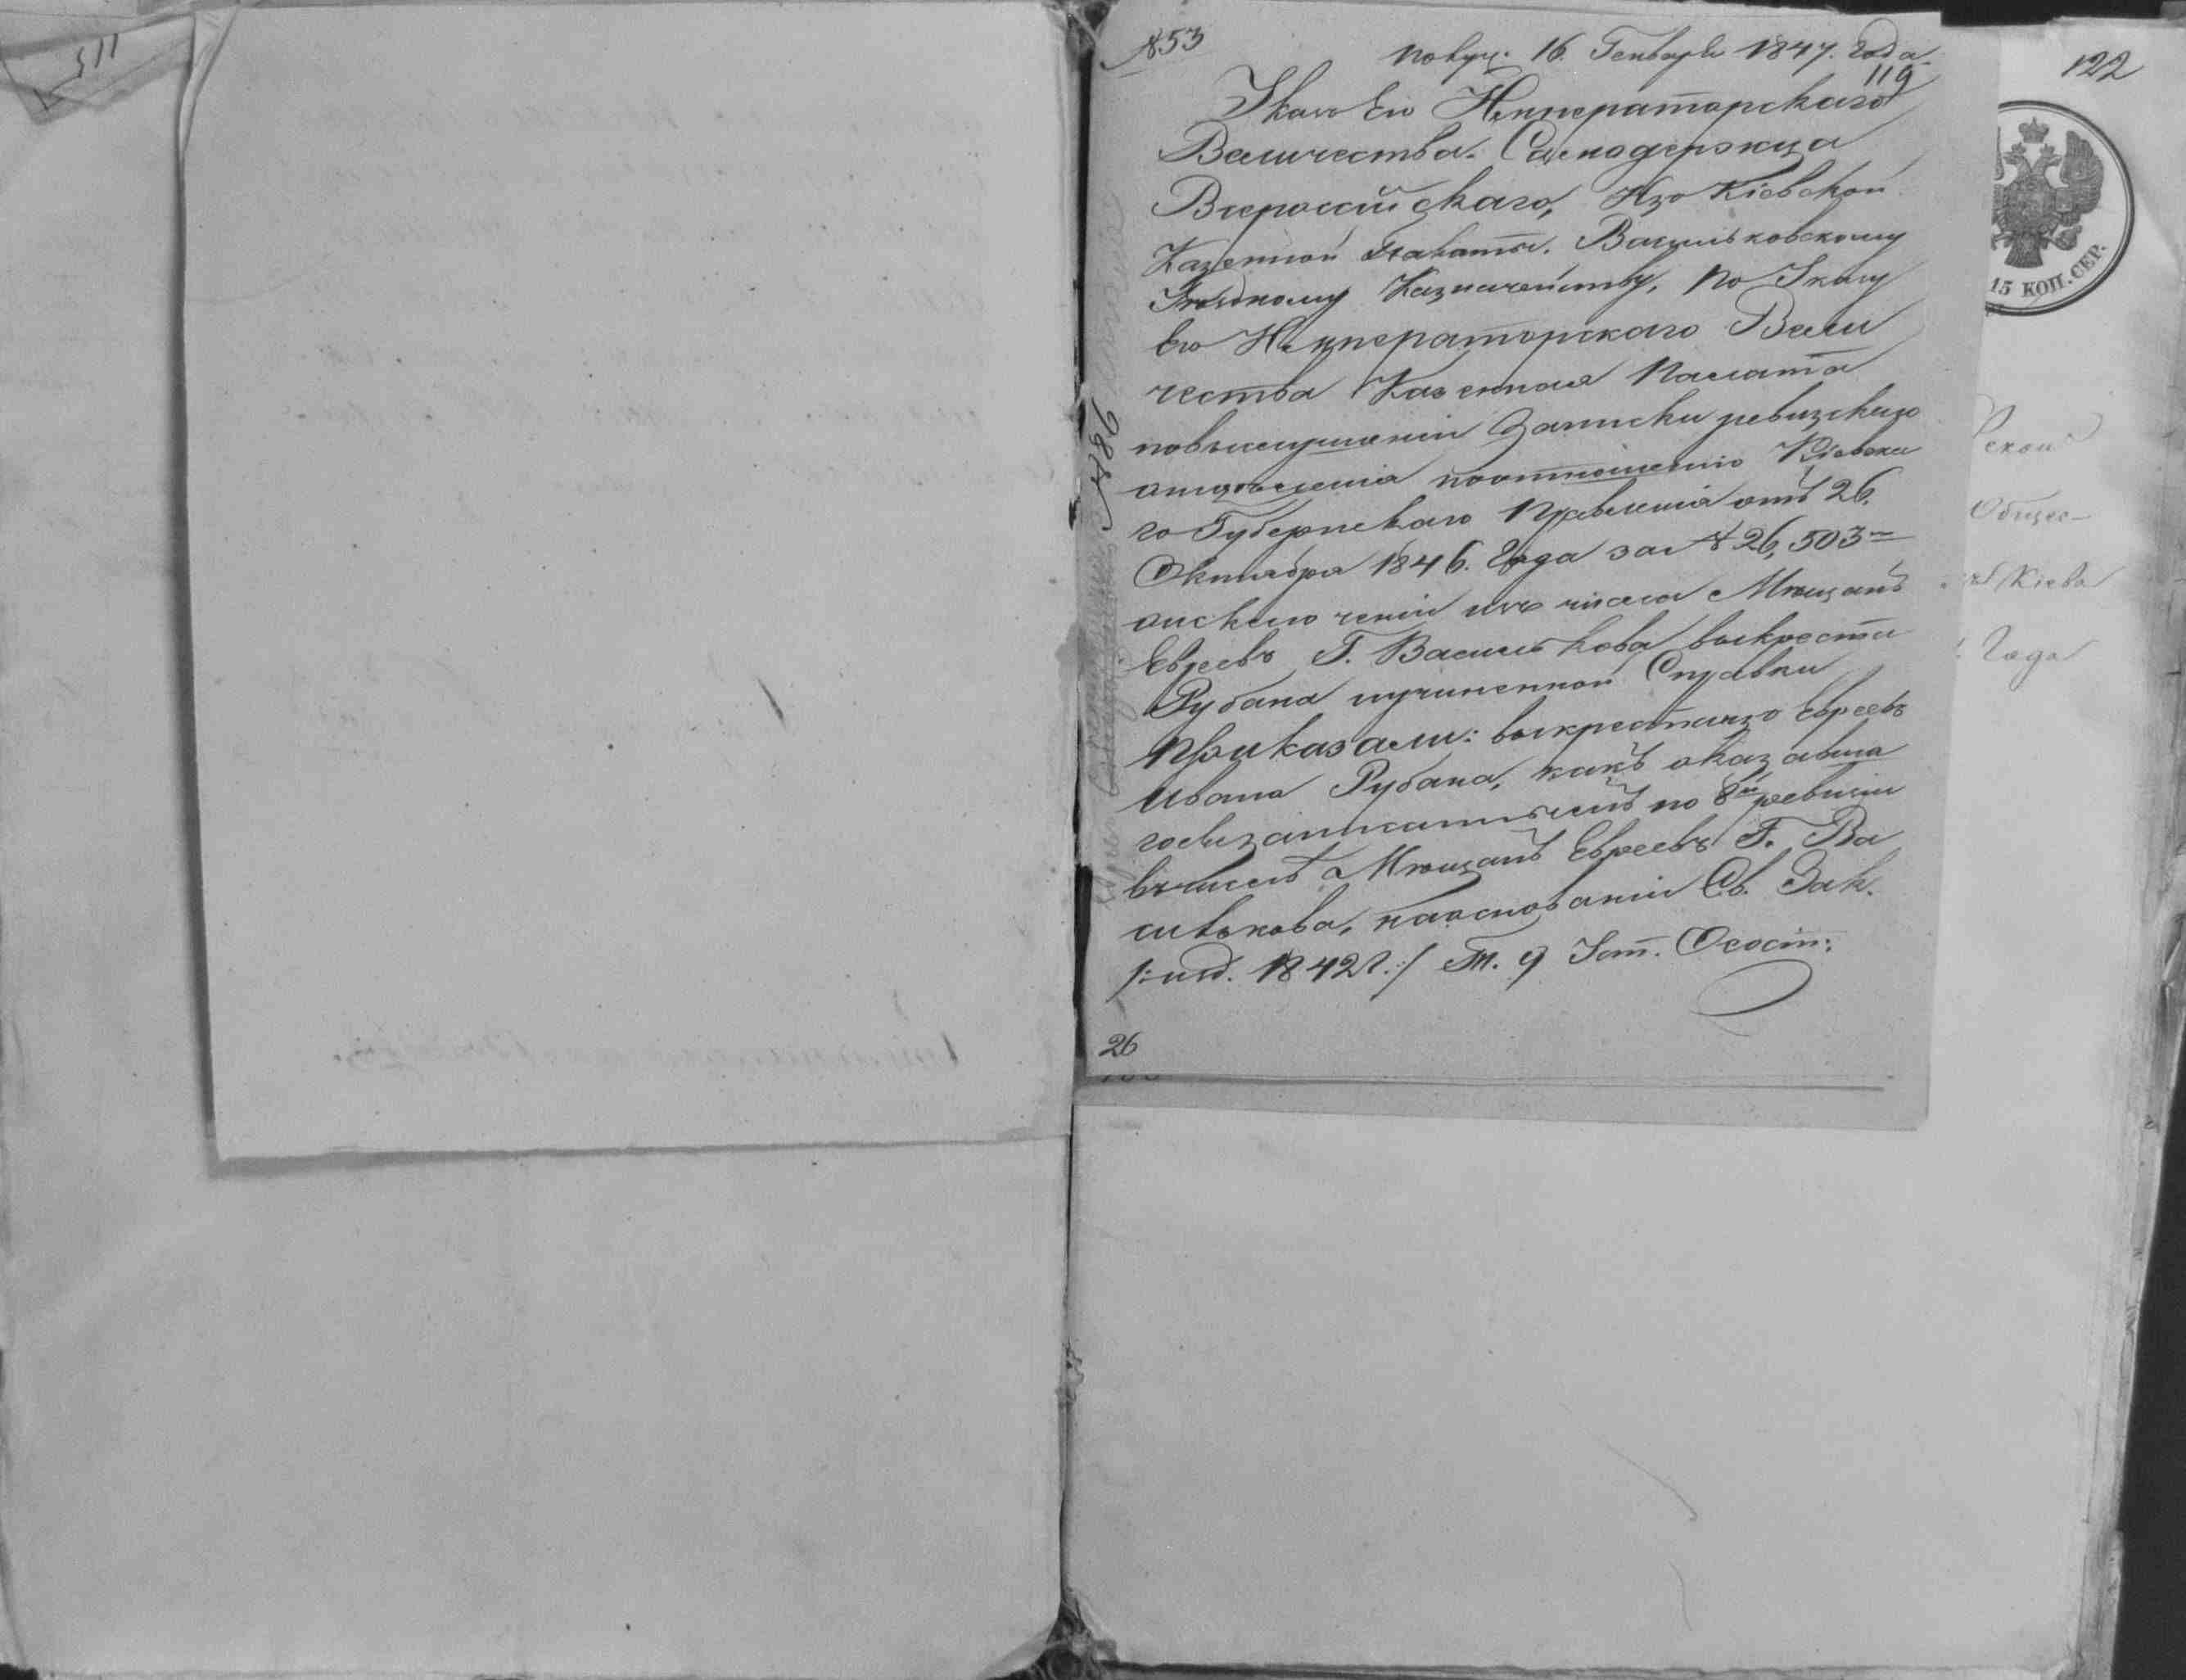 115
№ 53
Получ. 16. Генваря 1847. года.
119
Указъ Его Императорскаго
Величества. Самодержца
Всеросийскаго, Изъ Кіевской
Казенной Палаты. Васильковскому
Уездному Казначейству, По Указу
Его Императорскаго Вели
чества Казенная Палата
повыслушаніи Записки ревизскаго
отделенія поотношенію Кіевска
го Губернскаго Правленія отъ 26.
Октября 1846. Года за № 26,503м
оисключеніи изъ числа Мещанъ
Евреевъ Г. Василькова выкреста
Рубана иучиненной Справки
Приказали: выкрестаизъ Евреевъ
Ивана Рубана, какъ оказавша
гося записаннымъ по 8й ревизіи
вчисле Мещанъ Евреевъ Г. Ва
силькова, наоснованіи Св. Зак.
/:изд. 1842 г.:/ Т. 9 Уст. О сост:
26
122
15 КОП. СЕР.
ской
Общес-
Кіева
Года